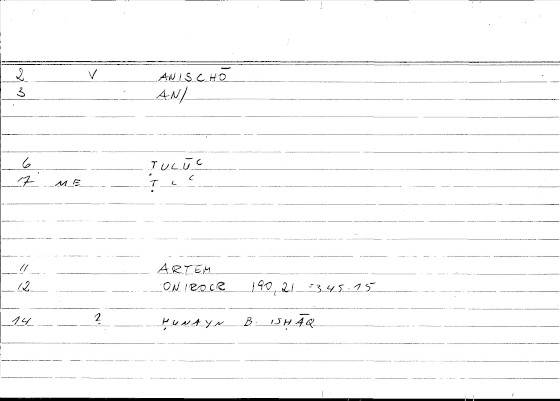 2 V ANISCHŌ
3 AN/
6 ṬULŪC
17 ME ṬLC
11 ARTEM
12 ONIROCR 190,21 =345.15
14 ? ḤUNAYN B. ISḤĀQ